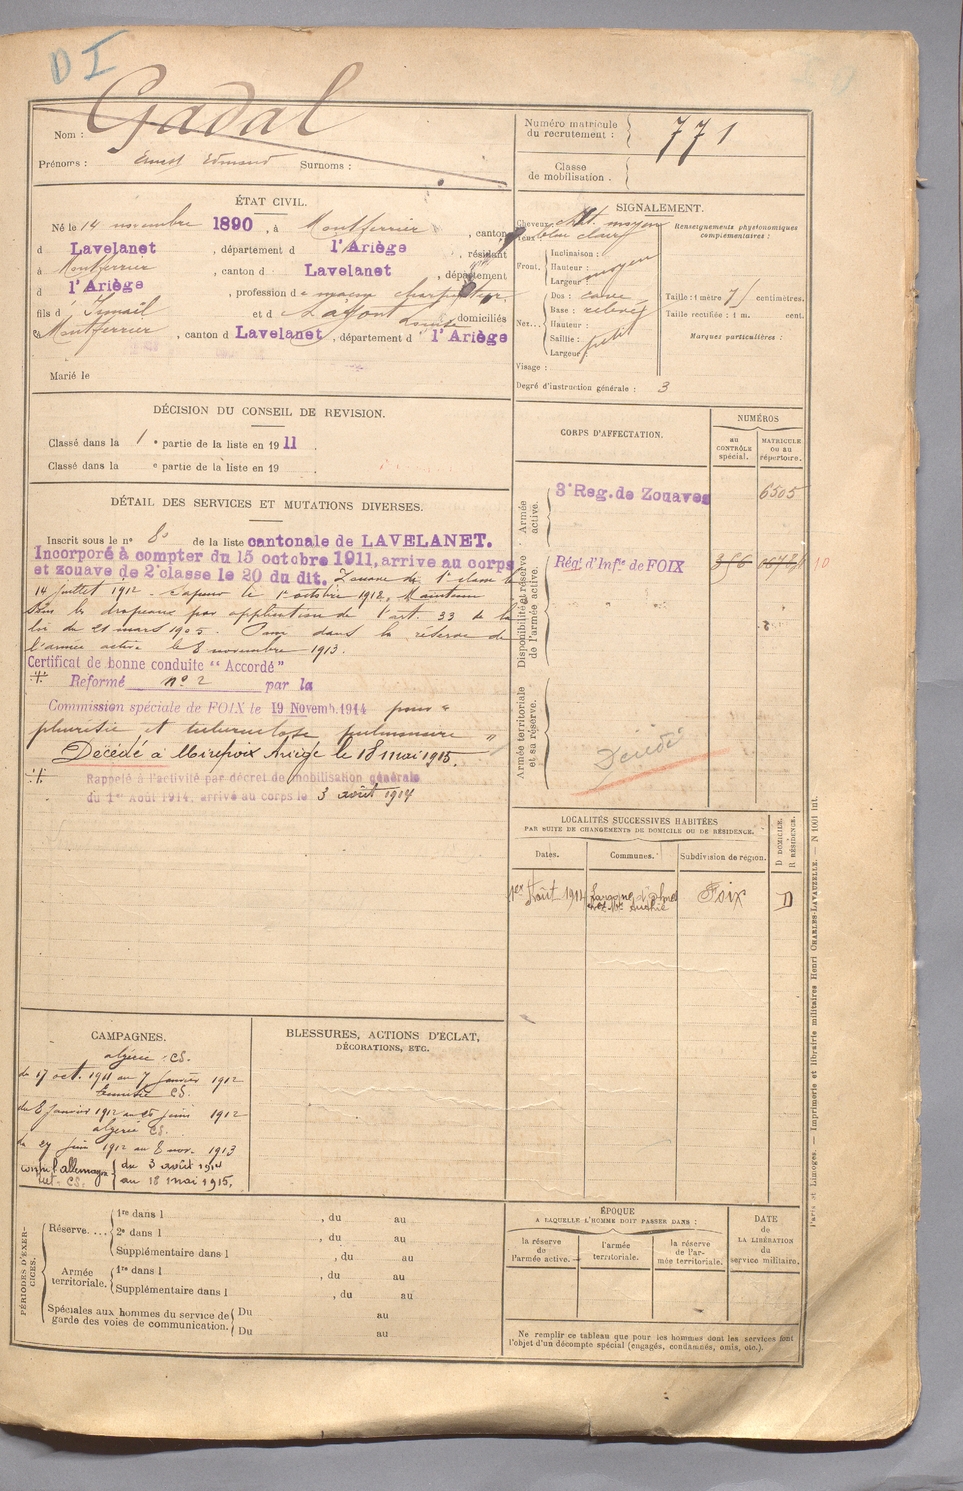 D I
Gadal
Nom :
Prénoms : Ernest Edmond Surnoms :
Numéro matricule du recrutement : 771
Classe de mobilisation.
ÉTAT CIVIL.
Né le 14 novembre 1890, à Montferrier, canton
d Lavelanet, département d l'Ariège, résidant
à Montferrier, canton d Lavelanet, département
d l'Ariège, profession de maçon charpentier.
fils d' Ismaïl et d Lafont Louise domiciliés
à Montferrier, canton d Lavelanet, département d l'Ariège
Marié le
SIGNALEMENT.
Cheveux cht. moyen
Yeux bleu clair
Front.
Inclinaison :
Hauteur : moyen
Largeur :
Nez...
Dos : cave
Base : relevée
Hauteur :
Saillie : petit
Largeur
Visage :
Degré d'instruction générale : 3
Renseignements physionomiques complémentaires :
Taille : 1 mètre 71 centimètres.
Taille rectifiée : 1 m. cent.
Marques particulières :
DÉCISION DU CONSEIL DE REVISION.
Classé dans la 1e partie de la liste en 1911.
Classé dans la e partie de la liste en 19 .
CORPS D'AFFECTATION.
NUMÉROS
au CONTRÔLE spécial.
MATRICULE ou au répertoire.
Armée active.
3e Reg. de Zouaves 6505
Disponibilité et réserve de l'armée active.
Rég! d'Infie de FOIX 356 10
Armée territoriale et sa réserve.
Décédé
DÉTAIL DES SERVICES ET MUTATIONS DIVERSES.
Inscrit sous le n° 80 de la liste cantonale de LAVELANET.
Incorporé à compter du 15 octobre 1911, arrive au corps
et zouave de 2e classe le 20 du dit. Zouave de 1e classe le
14 juillet 1912. Sapeur le 1er octobre 1912. Maintenu
sous les drapeaux par application de l'art. 33 de la
loi du 21 mars 1905. Passé dans la réserve de
l'armée active le 8 novembre 1913.
Certificat de bonne conduite "Accordé"
Reformé n° 2 par la
Commission spéciale de FOIX le 19 Novemb. 1914 pour "
pleurésie et tuberculose pulmonaire "
Décédé à Mirepoix Ariège le 18 mai 1915.
Rappelé à l'activité par décret de mobilisation générale
du 1er Août 1914, arrivé au corps le 3 août 1914
LOCALITÉS SUCCESSIVES HABITÉES
PAR SUITE DE CHANGEMENTS DE DOMICILE OU DE RÉSIDENCE.
Dates.
Communes.
Subdivision de région.
D DOMICILE. R RÉSIDENCE.
1er Août 1914 Laroque d'Olmes Foix D
CAMPAGNES.
Algérie CS.
du 17 oct. 1911 au 7 janvier 1912
Tunisie CS.
du 8 janvier 1912 au 26 juin 1912
Algérie CS.
du 27 juin 1912 au 8 nov. 1913
contre l'allemagne du 3 août 1914
int. CS. au 18 mai 1915.
BLESSURES, ACTIONS D'ECLAT,
DÉCORATIONS, ETC.
PÉRIODES D'EXERCICES.
Réserve....
1re dans l , du au
2e dans l , du au
Supplémentaire dans l , du au
Armée territoriale.
1re dans l , du au
Supplémentaire dans l , du au
Spéciales aux hommes du service de garde des voies de communication.
Du au
Du au
ÉPOQUE
A LAQUELLE L'HOMME DOIT PASSER DANS :
la réserve de l'armée active.
l'armée territoriale.
la réserve de l'armée territoriale.
DATE de LA LIBÉRATION du service militaire.
Ne remplir ce tableau que pour les hommes dont les services font
l'objet d'un décompte spécial (engagés, condamnés, omis, etc.).
Paris et Limoges. — Imprimerie et librairie militaires Henri CHARLES-LAVAUZELLE. — N 1001 int.